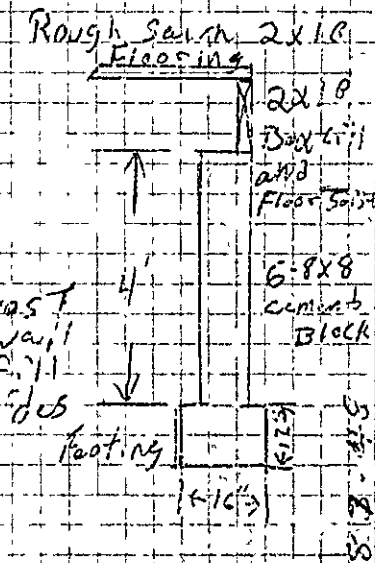 Rough Sawn 2x10
Flooring
2x10
Box Sill
and
Floor Joist
4'
6-8x8
cement
Block
Footing
12"
16"